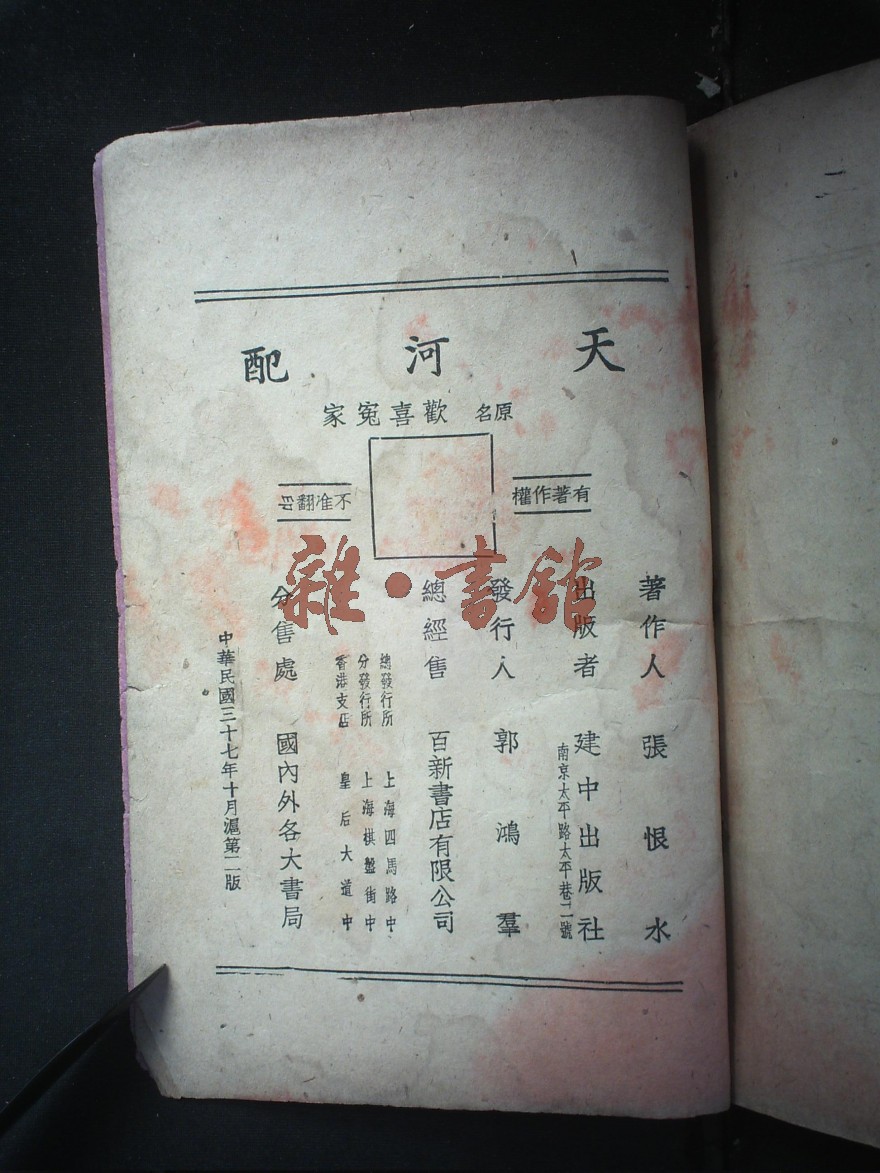 天河配
原名 歡喜冤家
有著作權
不准翻印
著作人 張恨水
出版者 建中出版社
南京太平路太平巷二號
發行人 郭鴻羣
總經售 百新書店有限公司
總發行所 上海四馬路中
分發行所 上海棋盤街中
香港支店 皇后大道中
分售處 國內外各大書局
中華民國三十七年十月滬第二版
雜·書館